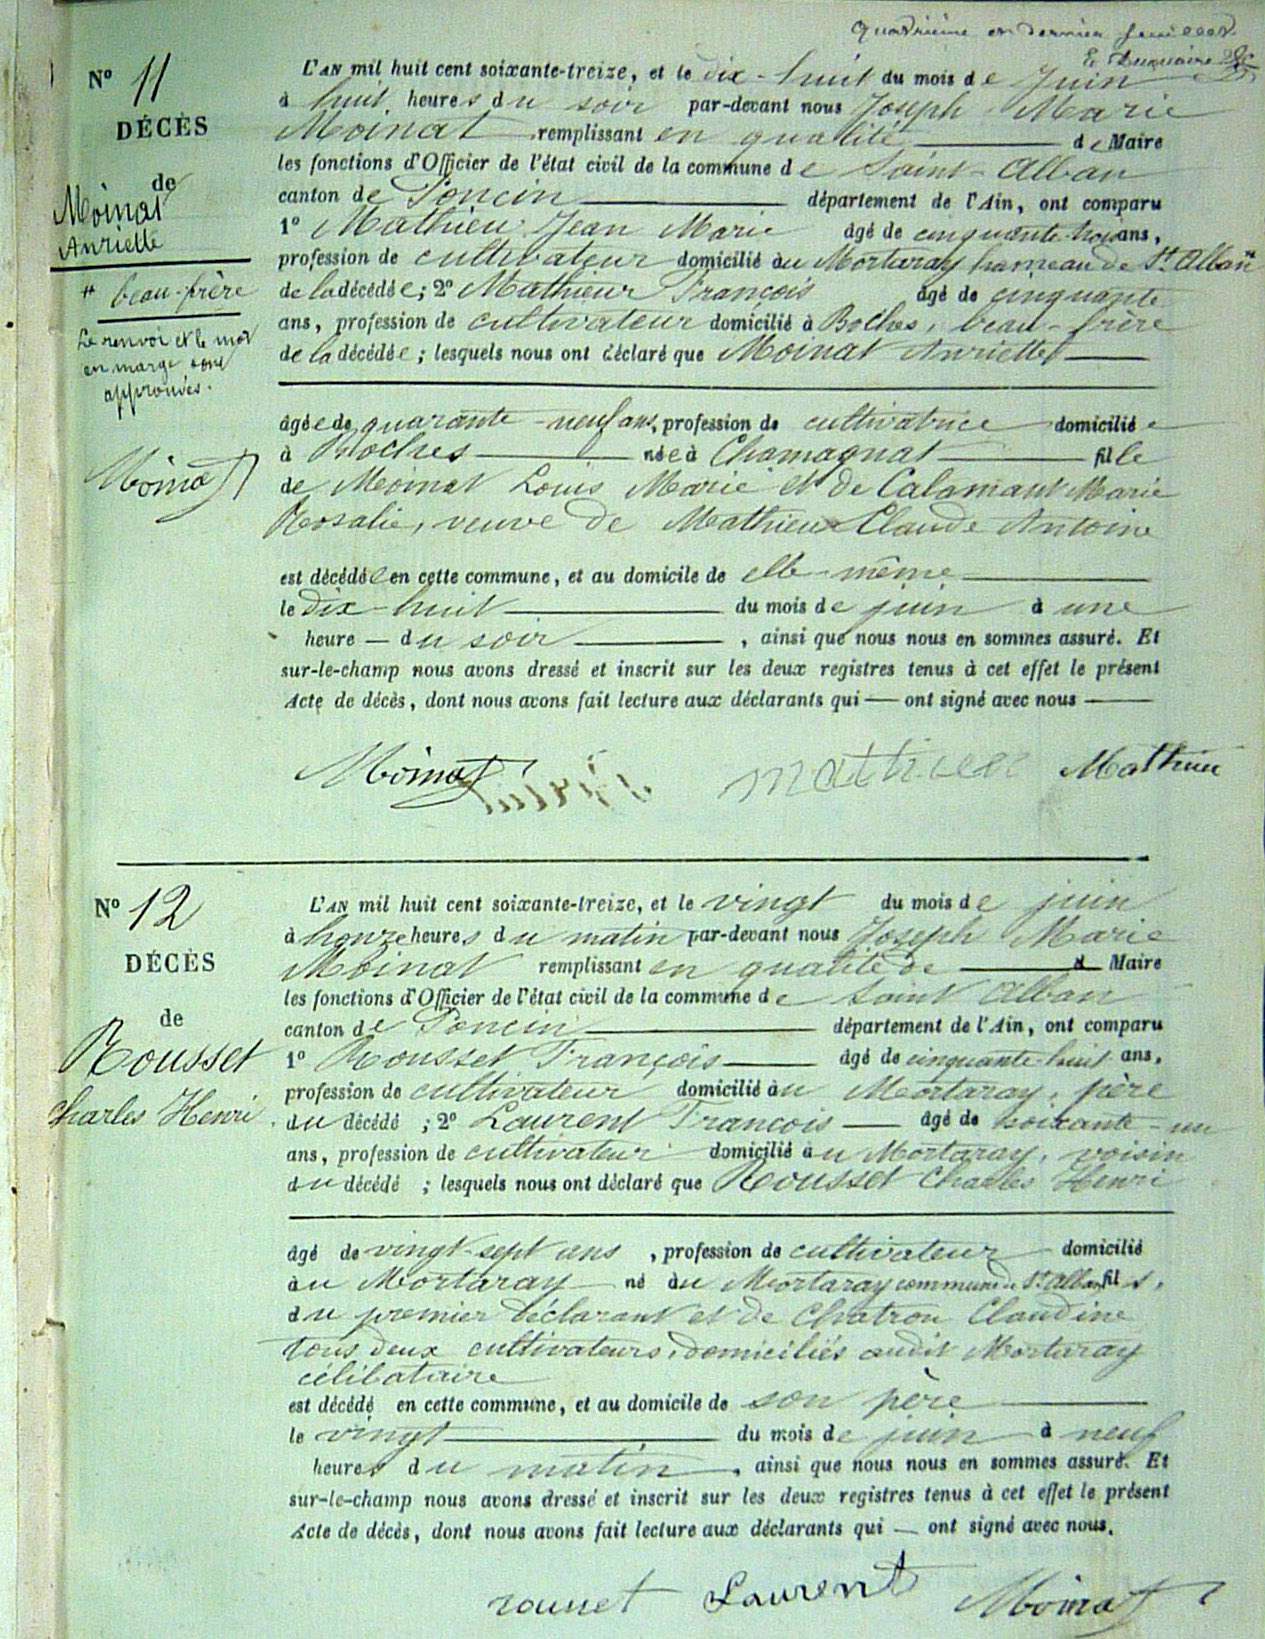 Quatrième et dernier feuillet
N° 11
DÉCÈS
de
Moinat
Anriette
# beau-frère
Le renvoi et le mot
en marge sont
approuvés.
Moinat
L'AN mil huit cent soixante-treize, et le dix-huit du mois de Juin
à huit heures du soir par-devant nous Joseph Marie
Moinat remplissant en qualité de Maire
les fonctions d'Officier de l'état civil de la commune de Saint-Alban
canton de Poncin département de l'Ain, ont comparu
1° Mathieu Jean Marie âgé de cinquante-trois ans,
profession de cultivateur domicilié au Mortaray hameau de St Alban #
de la décédée; 2° Mathieu François âgé de cinquante
ans, profession de cultivateur domicilié à Boches, beau-frère
de la décédée; lesquels nous ont déclaré que Moinat Anriette
âgée de quarante-neuf ans, profession de cultivatrice domiciliée
à Boches née à Chamagnat fille
de Moinat Louis Marie et de Calamant Marie
Rosalie, veuve de Mathieu Claude Antoine
est décédée en cette commune, et au domicile de elle-même
le dix-huit du mois de juin à une
heure du soir, ainsi que nous nous en sommes assuré. Et
sur-le-champ nous avons dressé et inscrit sur les deux registres tenus à cet effet le présent
Acte de décès, dont nous avons fait lecture aux déclarants qui ont signé avec nous
Moinat mathieu Mathieu
N° 12
DÉCÈS
de
Rousset
Charles Henri.
L'AN mil huit cent soixante-treize, et le vingt du mois de juin
à honze heures du matin par-devant nous Joseph Marie
Moinat remplissant en qualité de d Maire
les fonctions d'Officier de l'état civil de la commune de Saint Alban
canton de Poncin département de l'Ain, ont comparu
1° Rousset François âgé de cinquante-huit ans,
profession de cultivateur domicilié au Mortaray, père
du décédé; 2° Laurent François âgé de soixante-un
ans, profession de cultivateur domicilié au Mortaray, voisin
du décédé; lesquels nous ont déclaré que Rousset Charles Henri
âgé de vingt-sept ans, profession de cultivateur domicilié
au Mortaray né au Mortaray commune de St Alban fils,
du premier déclarant et de Chatron Claudine
tous deux cultivateurs, domiciliés audit Mortaray
célibataire
est décédé en cette commune, et au domicile de son père
le vingt du mois de juin à neuf
heures du matin, ainsi que nous nous en sommes assuré. Et
sur-le-champ nous avons dressé et inscrit sur les deux registres tenus à cet effet le présent
Acte de décès, dont nous avons fait lecture aux déclarants qui ont signé avec nous.
rousset Laurent Moinat